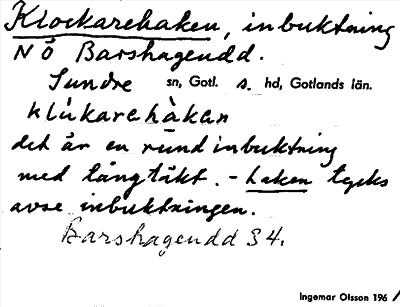 Klockarehaken, inbuktning
NÖ Barshageudd.
Sundre sn, Gotl. s. hd, Gotlands län.
klu̇karehàkan
det är en rund inbuktning
med tångtäkt. - haken tycks
avse inbuktningen.
Barshageudd 34.
Ingemar Olsson 196